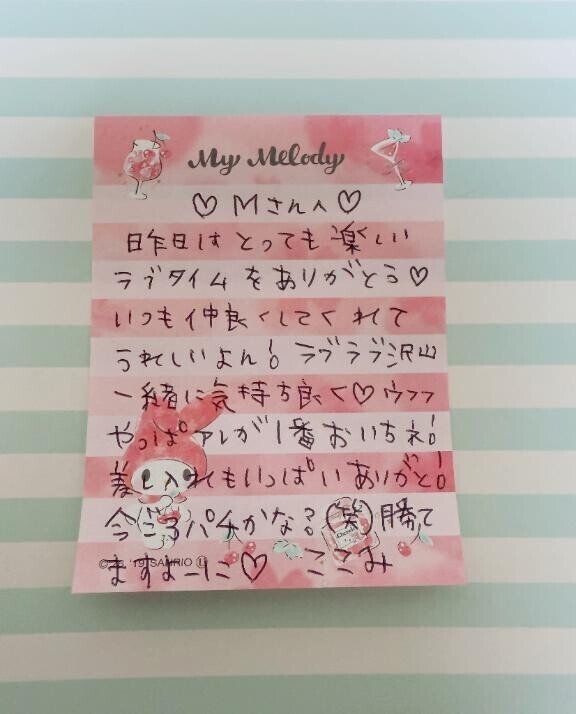 My Melody
♡ Mさんへ ♡
昨日は とっても 楽しい
ラブタイムを ありがとう♡
いつも 仲良くしてくれて
うれしいよん! ラブラブ沢山
一緒に気持ち良く♡ウフフ
やっぱ アレが 1番 おいちネ!
差し入れもいっぱい ありがと!
今ごろパチかな?(笑)勝て
ますよーに♡ ここみ
'19 SANRIO